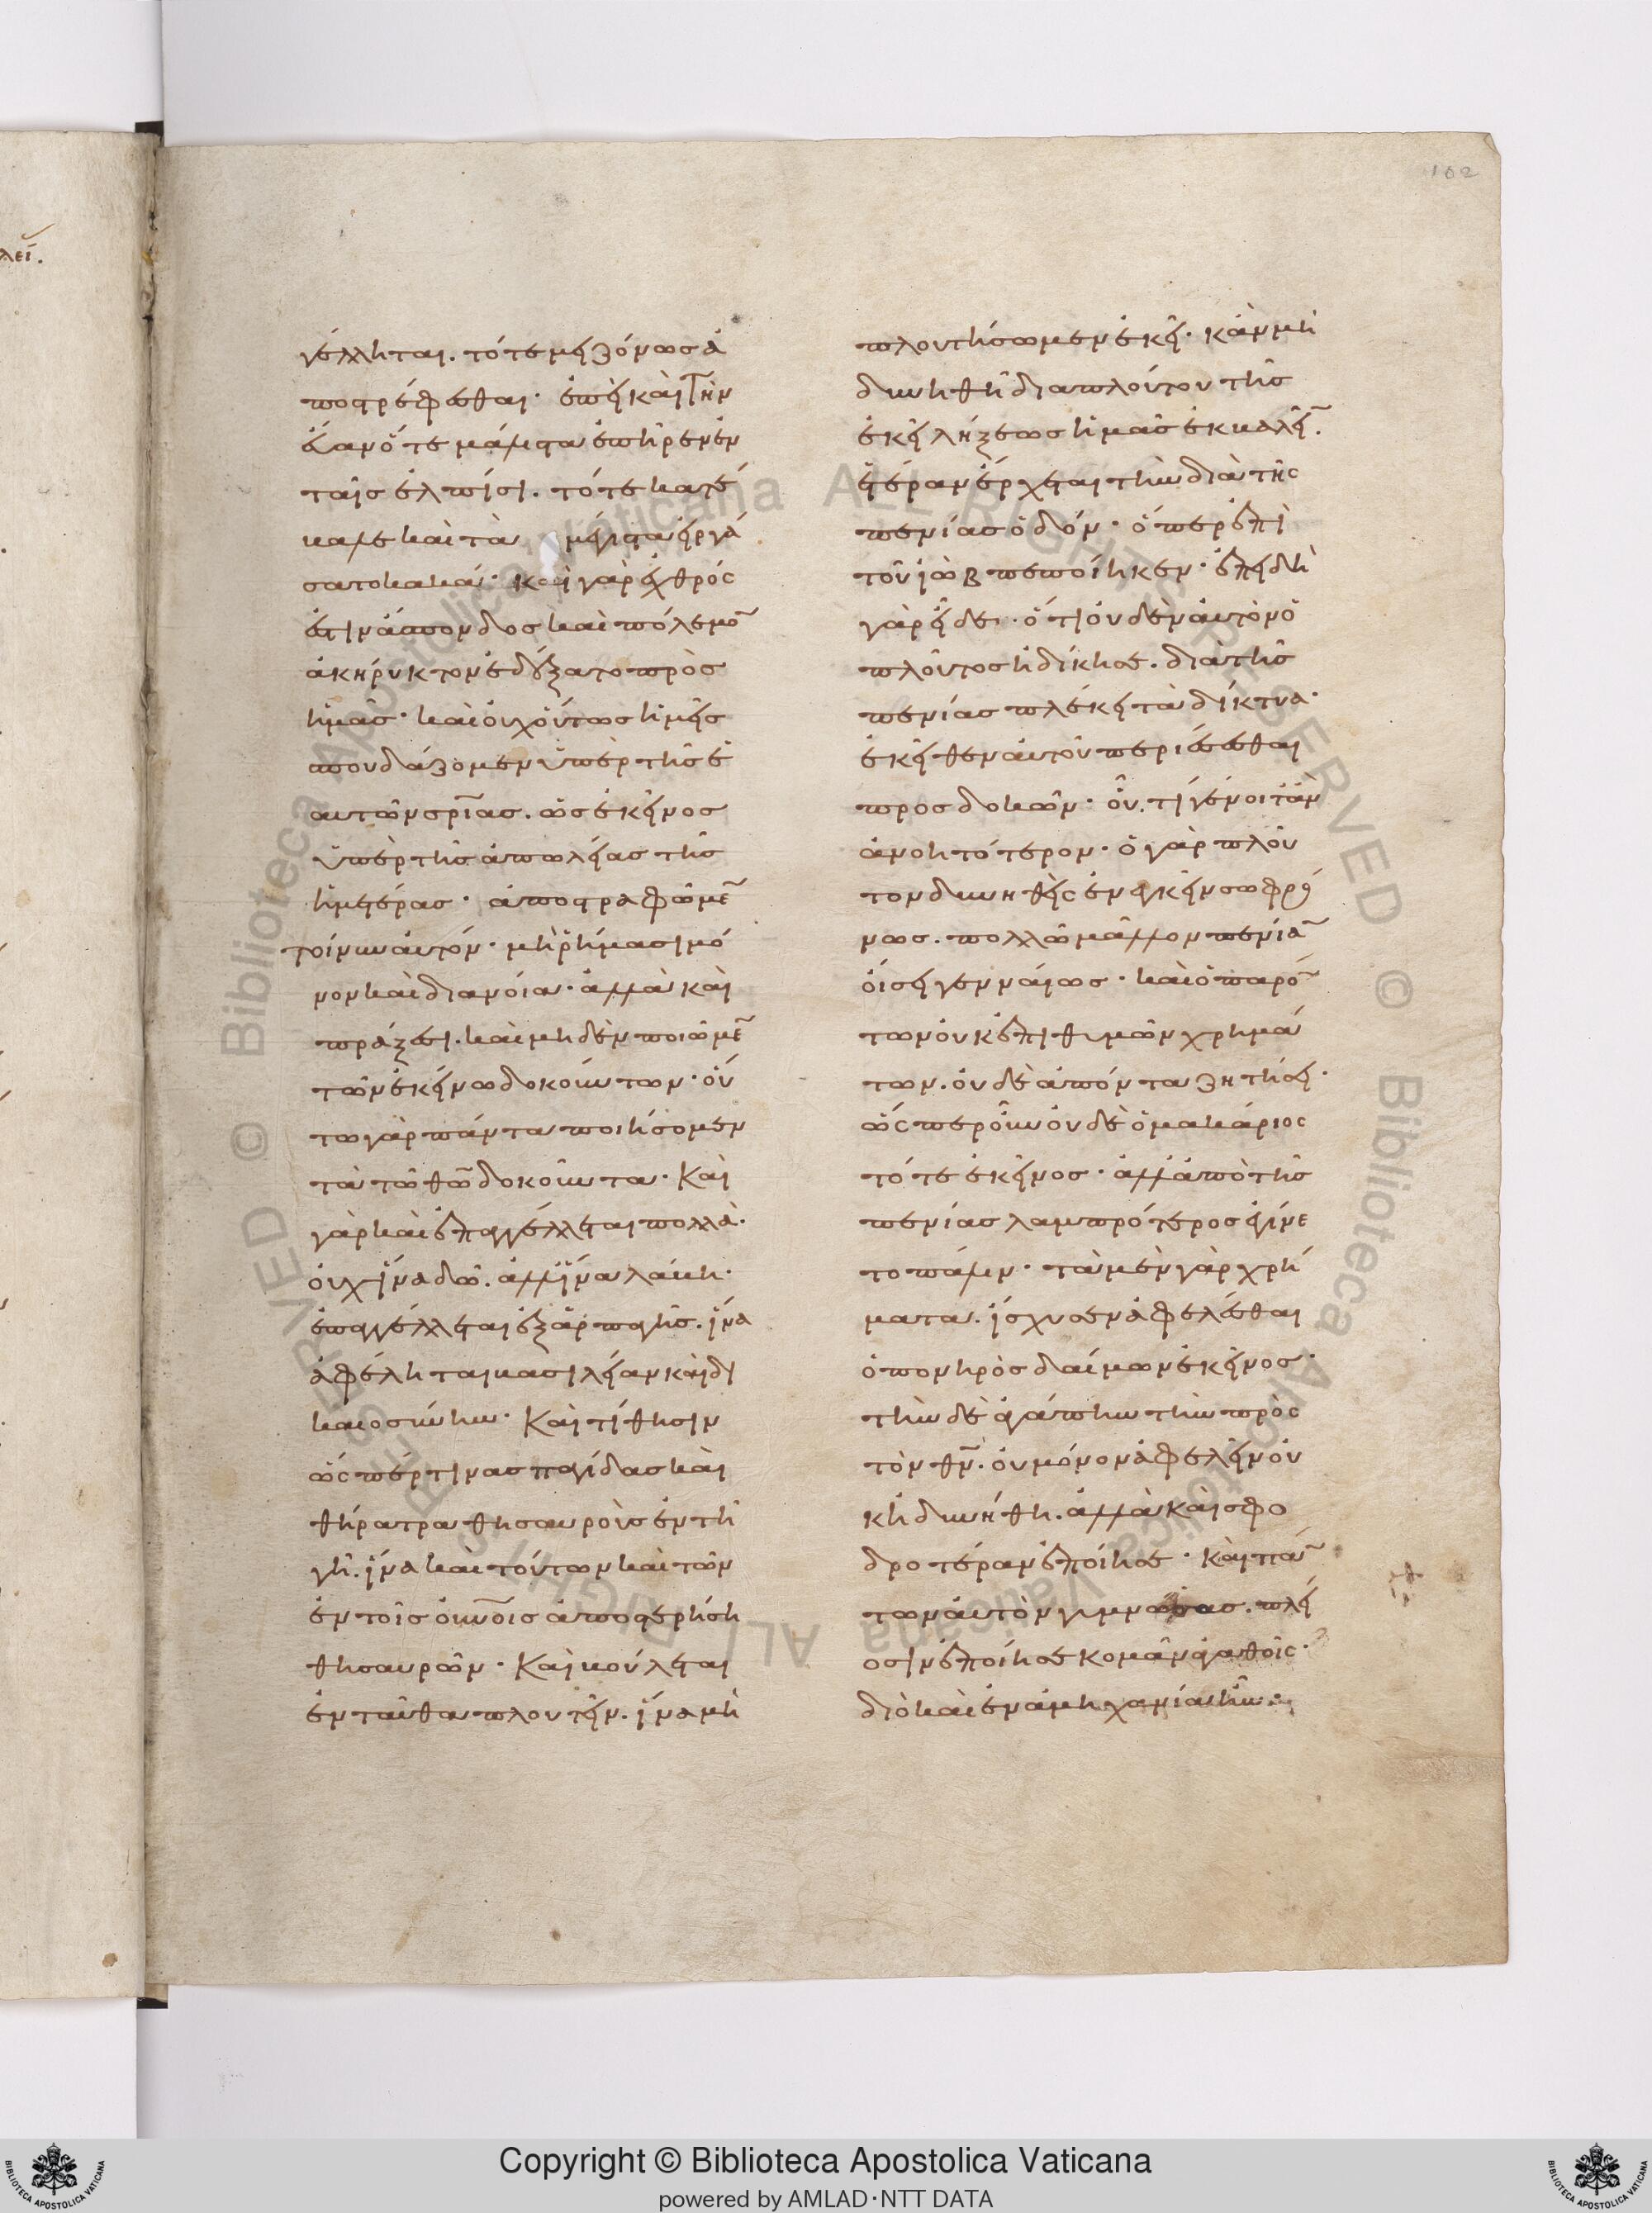 162
λεῖ.
γέλληται. τότε μειζόνως ἀ
ποστρέφεσθαι· ἐπεὶ καὶ τὴν
εὔαν ὅτε μάλιστα ἐπῆρεν ἐν
ταῖς ἐλπίσι. τότε κατέ
βαλε καὶ τὰ μέγιστα εἰργά
σατο κακά· καὶ γὰρ ἐχθρός
ἐστιν ἄσπονδος καὶ πόλεμο̅
ἀκήρυκτον ἐδέξατο πρὸς
ἡμᾶς· καὶ οὐχ οὕτως ἡμεῖς
σπουδάζομεν ὑπὲρ τῆς ἑ
αυτῶν σρ̅ίας. ὡς ἐκεῖνος
ὑπὲρ τῆς ἀπωλείας τῆς
ἡμετέρας· ἀποστραφῶμε̅
τοίνυν αὐτόν· μὴ ῥήμασι μό
νον καὶ διανοία· ἀλλὰ καὶ
πράξεσι. καὶ μηδὲν ποιῶμε̅
τῶν ἐκείνω δοκούντων· οὕ
τω γὰρ πάντα ποιήσομεν
τὰ τῶ θω̅ δοκοῦντα· Καὶ
γὰρ καὶ ἐπαγγέλλεται πολλὰ·
οὐχ ἵνα δῶ. ἀλλ' ἵνα λάβη·
ἐπαγγέλλεται ἐξ ἁρπαγῆς. ἵνα
ἀφέληται βασιλείαν καὶ δι
καιοσύνην· Καὶ τίθησιν
ὥσπέρ τινας παγίδας καὶ
θήρατρα θησαυροὺς ἐν τῆ
γῆ. ἵνα καὶ τούτων καὶ τῶν
ἐν τοῖς οὐνοῖς ἀποστερήση
θησαυρῶν· Καὶ βούλεται
ἐνταῦθα πλουτεῖν. ἵνα μὴ
πλουτήσωμεν ἐκεῖ· κἂν μὴ
δυνηθῆ δια πλούτου τῆς
ἐκεῖ λήξεως ἡμᾶς ἐκβαλεῖ̅.
ἑτέραν ἔρχεται τὴν διὰ τῆς
πενίας ὁδόν· ὅπερ ἐπὶ
τοῦ ἰὼβ πεποίηκεν· ἐπειδὴ
γὰρ εἶδεν· ὅτι οὐδὲν αὐτὸν ὁ
πλοῦτος ἠδίκησε. διὰ τῆς
πενίας πλέκει τὰ δίκτυα·
ἐκεῖθεν αὐτοῦ περιέσεσθαι
προσδοκῶν· οὗ. τί γένοιτ' ἂν
ἀνοητότερον· ὁ γὰρ πλοῦ
τον δυνηθεὶς ἐνεγκεῖν σωφρό
νως. πολλῶ μᾶλλον πενία̅
οἴσει γενναίως· καὶ ὁ παρό̅
των οὐκ ἐπιθυμῶν χρημά
των. οὐδὲ ἀπόντα ζητήσει·
ὥσπερ οὖν οὐδὲ ὁ μακάριος
τότε ἐκεῖνος· ἀλλ' ἀπὸ τῆς
πενίας λαμπρότερος ἐγίνε
το πάλιν· τὰ μὲν γὰρ χρή
ματα. ἴσχυσεν ἀφελέσθαι
ὁ πονηρὸς δαίμων ἐκεῖνος·
τὴν δὲ ἀγάπην τὴν πρὸς
τὸν θν̅. οὐ μόνον ἀφελεῖν οὐ
κ ἠδυνήθη. ἀλλὰ καὶ σφο
δροτέραν ἐποίησε· Καὶ πά̅
των αὐτὸν γυμνώσας. πλεί
οσιν ἐποίησε κομᾶν ἀγαθοῖς·
διὸ καὶ ἐν ἀμηχανία ἦν